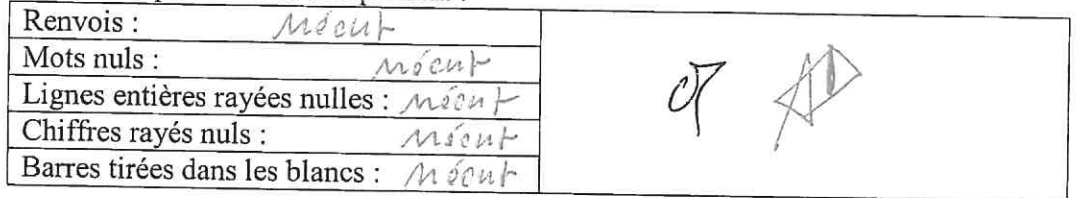 Renvois : néant
Mots nuls : néant
Lignes entières rayées nulles : néant
Chiffres rayés nuls : néant
Barres tirées dans les blancs : néant